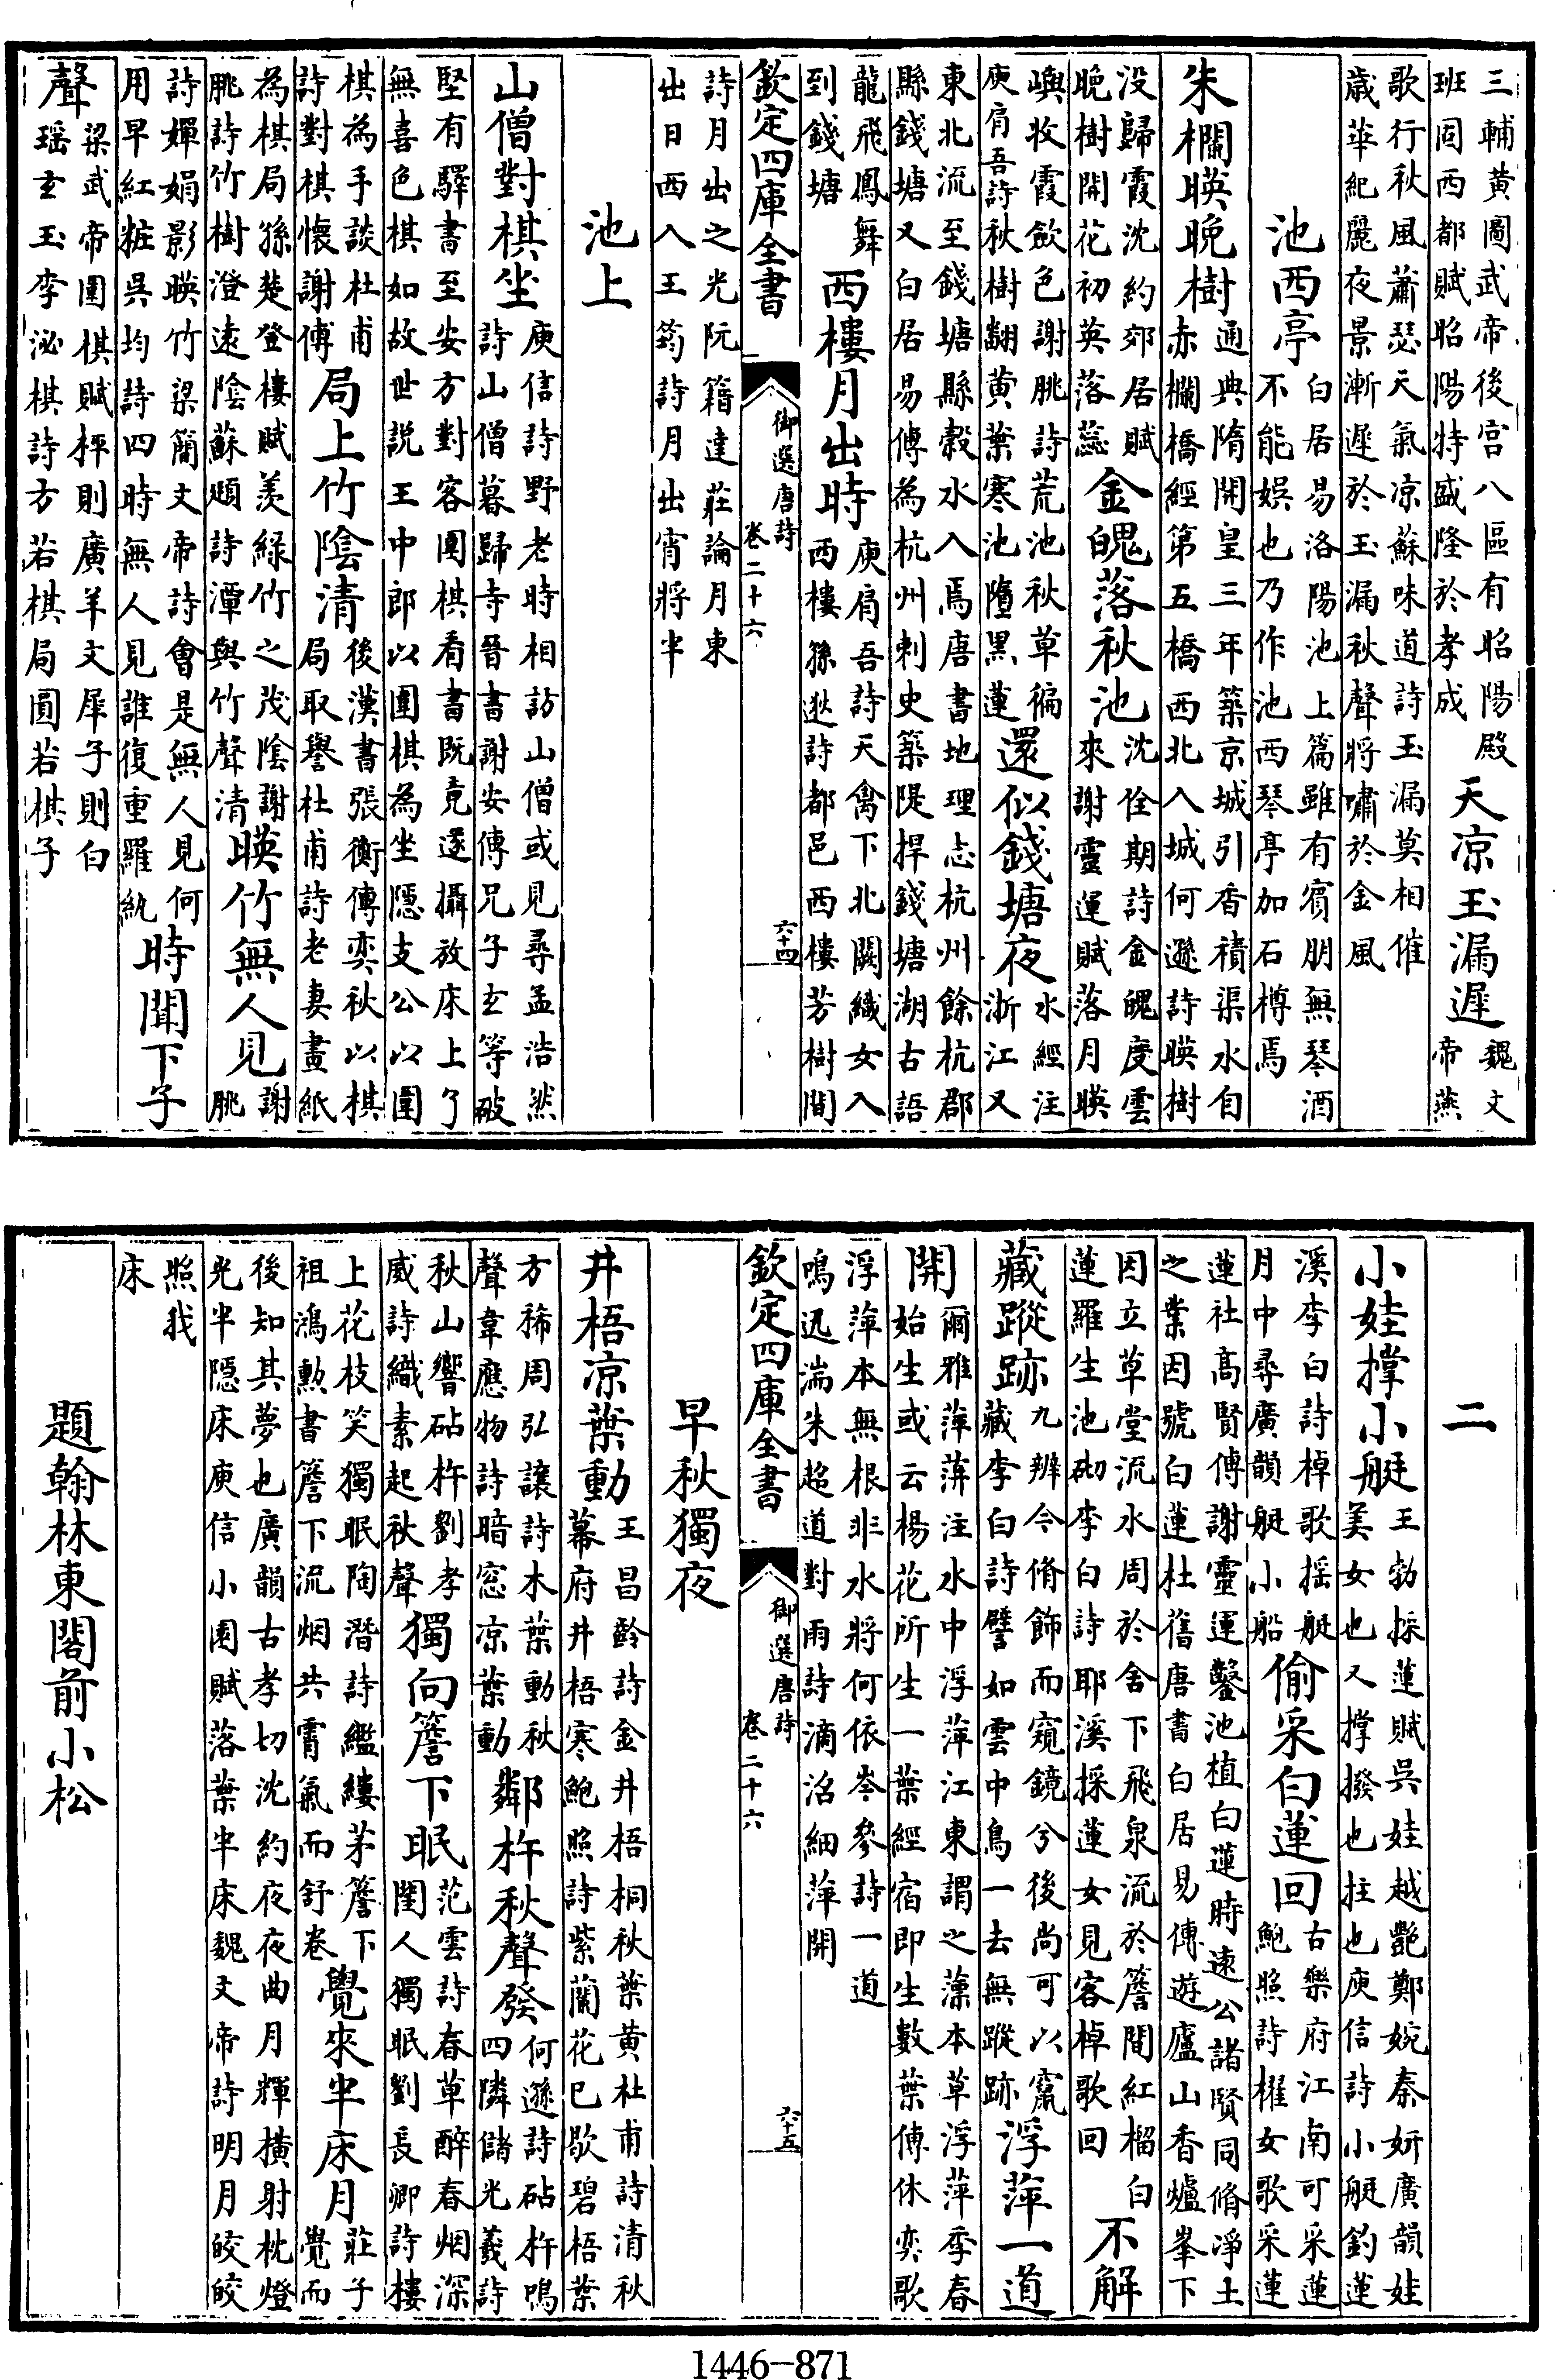 三輔黄圖武帝後宮八區有昭陽殿班固西都賦昭陽特盛隆於孝成天凉玉漏遲魏文帝燕
歌行秋風蕭瑟天氣凉蘇味道詩玉漏莫相催歲華紀麗夜景漸遲於玉漏秋聲將嘯於金風
池西亭白居易洛陽池上篇雖有賓朋無琴酒不能娛也乃作池西琴亭加石樽焉
朱欄暎晚樹通典隋開皇三年築京城引香積渠水自赤欄橋經第五橋西北入城何遜詩暎樹
没歸霞沈約郊居賦晚樹開花初英落蕊金魄落秋池沈佺期詩金魄度雲來謝靈運賦落月暎
嶼收霞斂色謝朓詩荒池秋草徧庾肩吾詩秋樹翻黄葉寒池墮黒蓮還似錢塘夜水經注浙江又
東北流至錢塘縣榖水入焉唐書地理志杭州餘杭郡縣錢塘又白居易傳為杭州刺史築隄捍錢塘湖古語
龍飛鳳舞到錢塘西樓月出時庾肩吾詩天禽下北闕織女入西樓孫逖詩都邑西樓芳樹間
欽定四庫全書 御選唐詩卷二十六 六十四
詩月出之光阮籍達莊論月東出日西入王筠詩月出宵將半
池上
山僧對棋坐庾信詩野老時相訪山僧或見尋孟浩然詩山僧暮歸寺晉書謝安傳兄子玄等破
堅有驛書至安方對客圍棋看書既竟遂攝放床上了無喜色棋如故世説王中郎以圍棋為坐隱支公以圍
棋為手談杜甫詩對棋懷謝傅局上竹陰清後漢書張衡傳奕秋以棋局取譽杜甫詩老妻畫紙
為棋局孫楚登樓賦羨緑竹之茂陰謝朓詩竹樹澄遠陰蘇頲詩潭與竹聲清暎竹無人見謝朓
詩嬋娟影暎竹梁簡文帝詩會是無人見何用早紅粧呉均詩四時無人見誰復重羅紈時聞下子
聲梁武帝圍棋賦枰則廣羊文犀子則白瑶玄玉李泌棋詩方若棋局圓若棋子
二
小娃撑小艇王勃採蓮賦呉娃越艷鄭婉秦妍廣韻娃美女也又撑撥也拄也庾信詩小艇釣蓮
溪李白詩棹歌揺艇月中尋廣韻艇小船偷采白蓮回古樂府江南可采蓮鮑照詩櫂女歌采蓮
蓮社髙賢傳謝靈運鑿池植白蓮時遠公諸賢同脩淨土之業因號白蓮社舊唐書白居易傳遊廬山香爐峯下
因立草堂流水周於舍下飛泉流於簷間紅榴白蓮羅生池砌李白詩耶溪採蓮女見客棹歌回不解
藏蹤跡九辨今脩飾而窺鏡兮後尚可以竄藏李白詩譬如雲中鳥一去無蹤跡浮萍一道
開爾雅萍蓱注水中浮萍江東謂之薸本草浮萍季春始生或云楊花所生一葉經宿即生數葉傅休奕歌
浮萍本無根非水將何依岑參詩一道鳴迅湍朱超道對雨詩滴沼細萍開
欽定四庫全書 御選唐詩卷二十六 六十五
早秋獨夜
井梧凉葉動王昌齡詩金井梧桐秋葉黄杜甫詩清秋幕府井梧寒鮑照詩紫蘭花已歇碧梧葉
方稀周弘讓詩木葉動秋聲韋應物詩暗窓凉葉動鄰杵秋聲發何遜詩砧杵鳴四隣儲光羲詩
秋山響砧杵劉孝威詩織素起秋聲獨向簷下眠范雲詩春草醉春烟深閨人獨眠劉長卿詩樓
上花枝笑獨眠陶潛詩繿縷茅簷下祖鴻勲書簷下流烟共霄氣而舒卷覺來半床月莊子覺而
後知其夢也廣韻古孝切沈約夜夜曲月輝横射枕燈光半隠床庾信小園賦落葉半床魏文帝詩明月皎皎
照我床
題翰林東閣前小松
1446-871